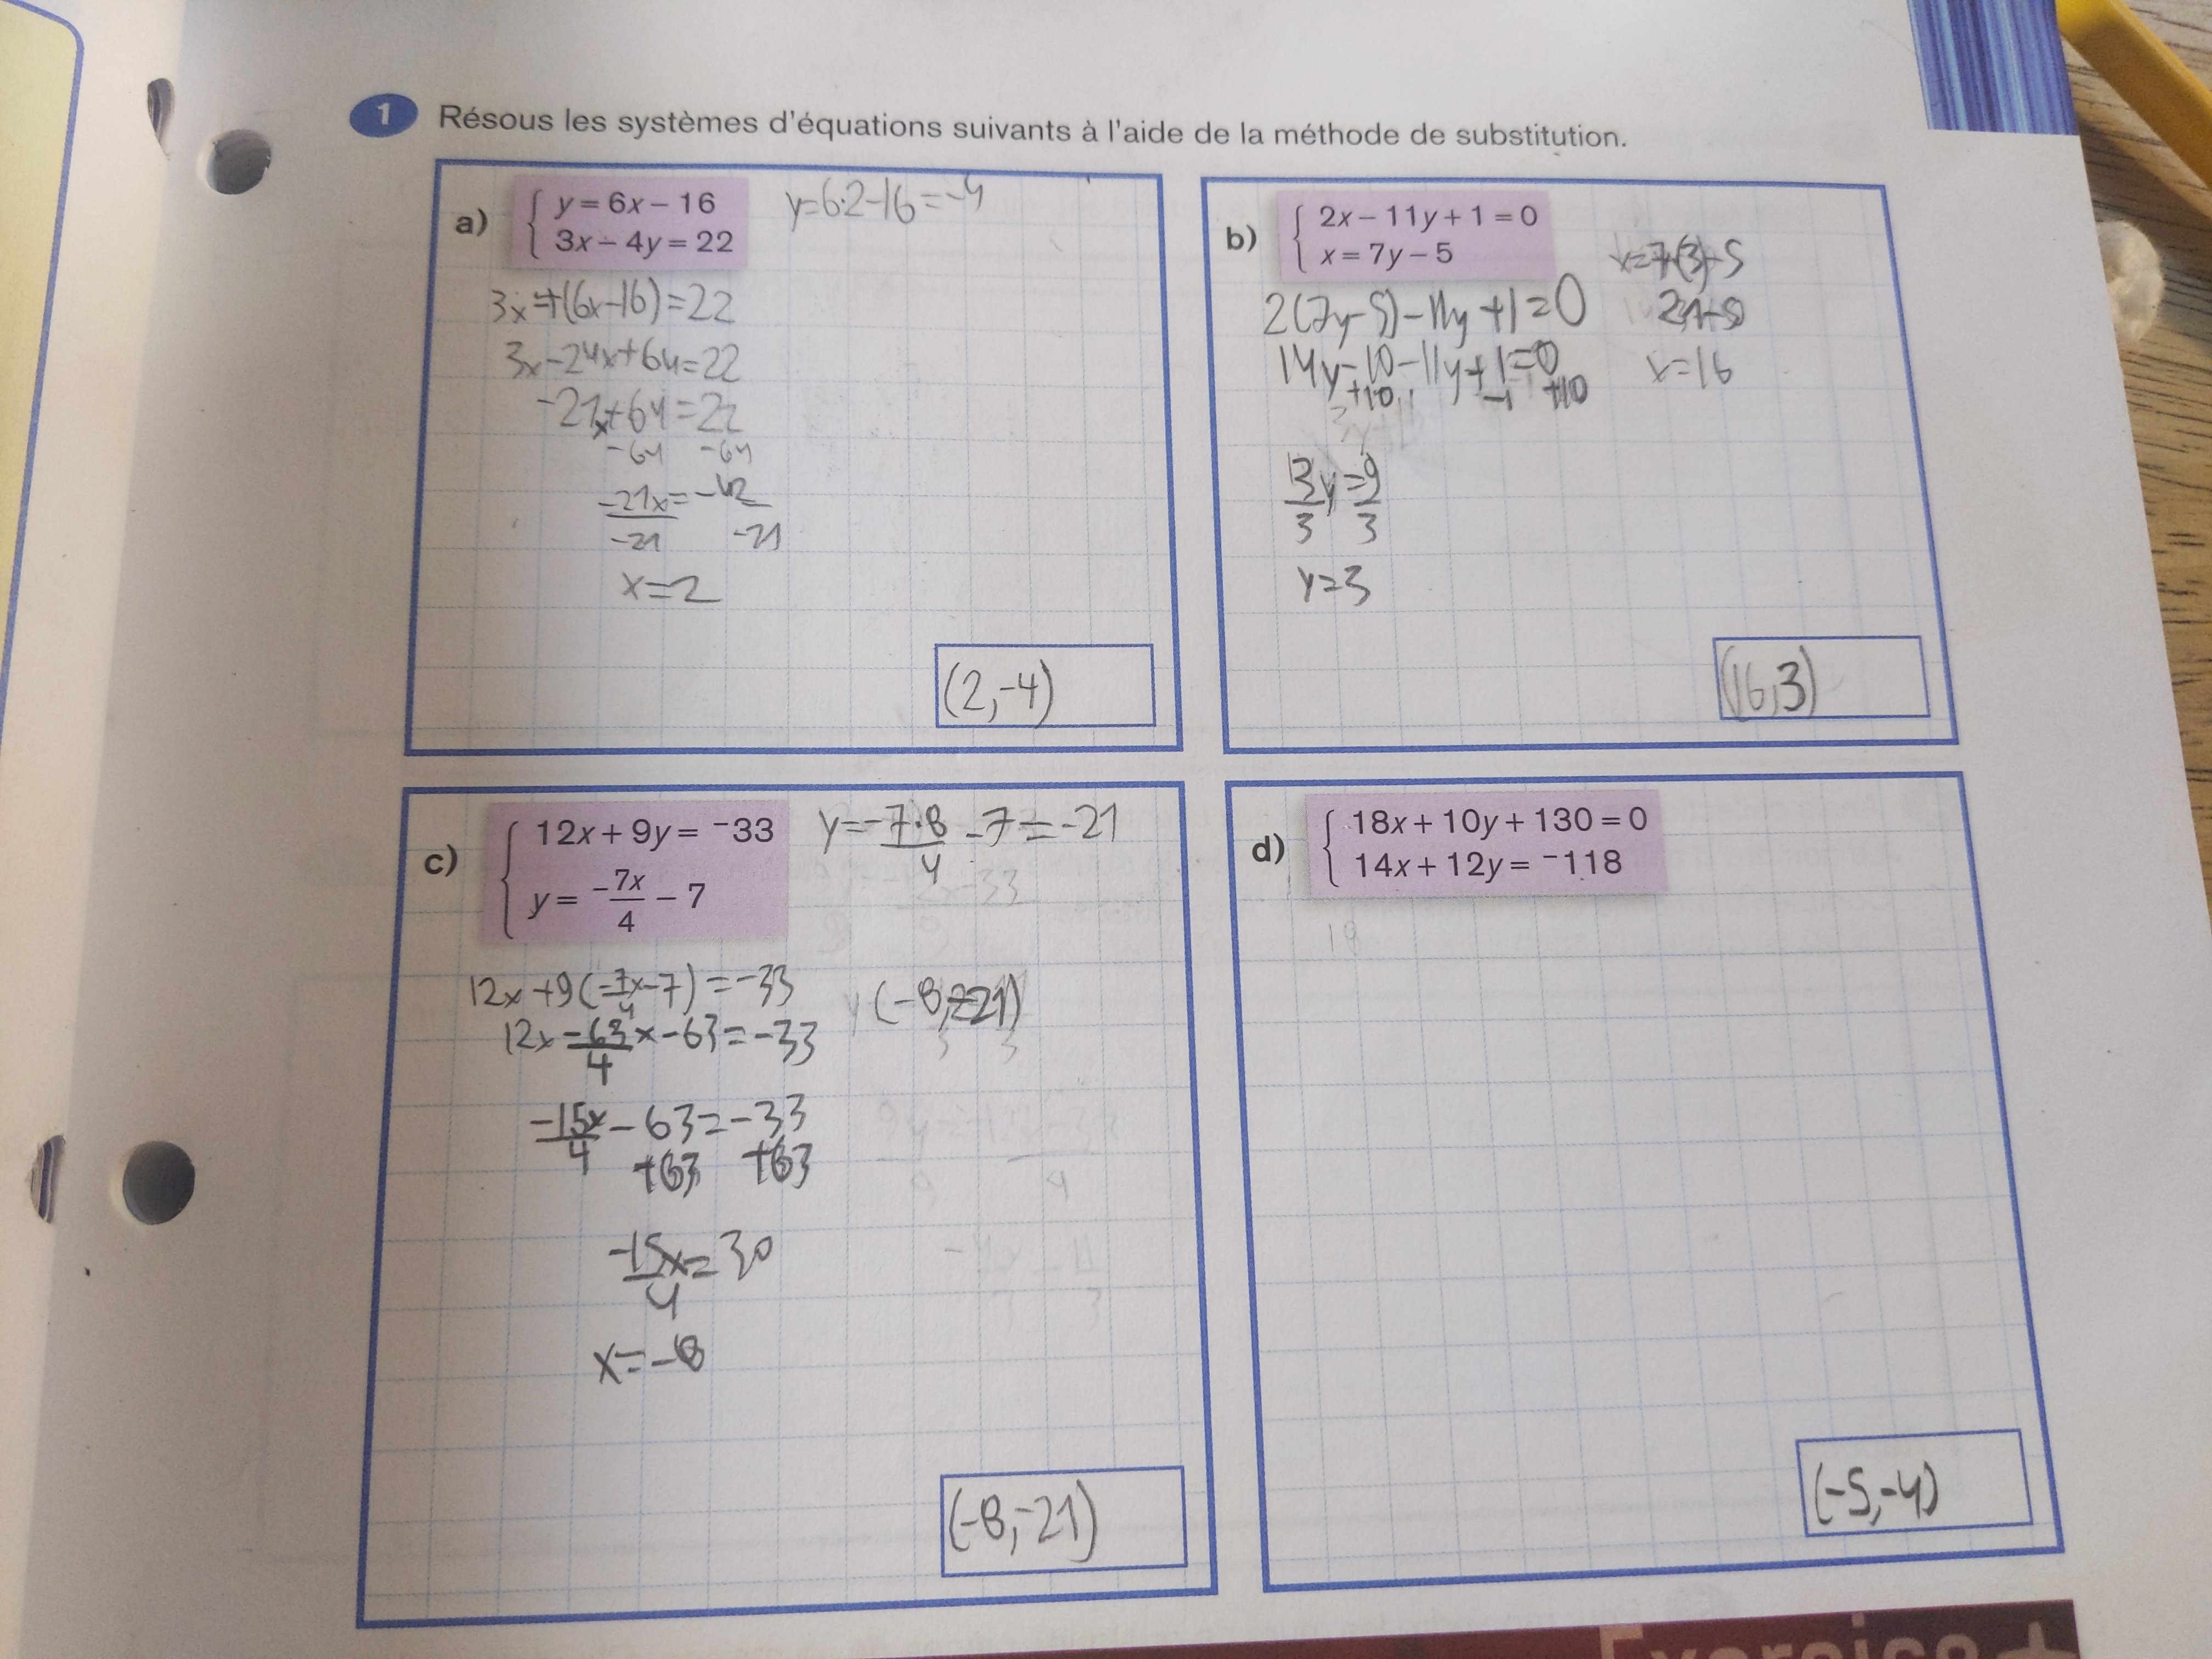 1 Résous les systèmes d'équations suivants à l'aide de la méthode de substitution.
a) y = 6x − 16
3x − 4y = 22
y=6·2−16=−4
3x−4(6x−16)=22
3x−24x+64=22
−21x+64=22
−64 −64
−21x=−42
−21 −21
x=2
(2,−4)
b) 2x − 11y + 1 = 0
x = 7y − 5
x=7(3)−5
21−5
x=16
2(7y−5)−11y+1=0
14y−10−11y+1=0
+10 −1 +10
3y=9
3 3
y=3
(16,3)
c) 12x + 9y = −33
y = −7x/4 − 7
y=−7·8/4 −7=−21
12x+9(−7x/4−7)=−33
12x−63/4x−63=−33
(−8,−21)
−15x/4−63=−33
+63 +63
−15x/4=30
x=−8
(−8,−21)
d) 18x + 10y + 130 = 0
14x + 12y = −118
18
(−5,−4)